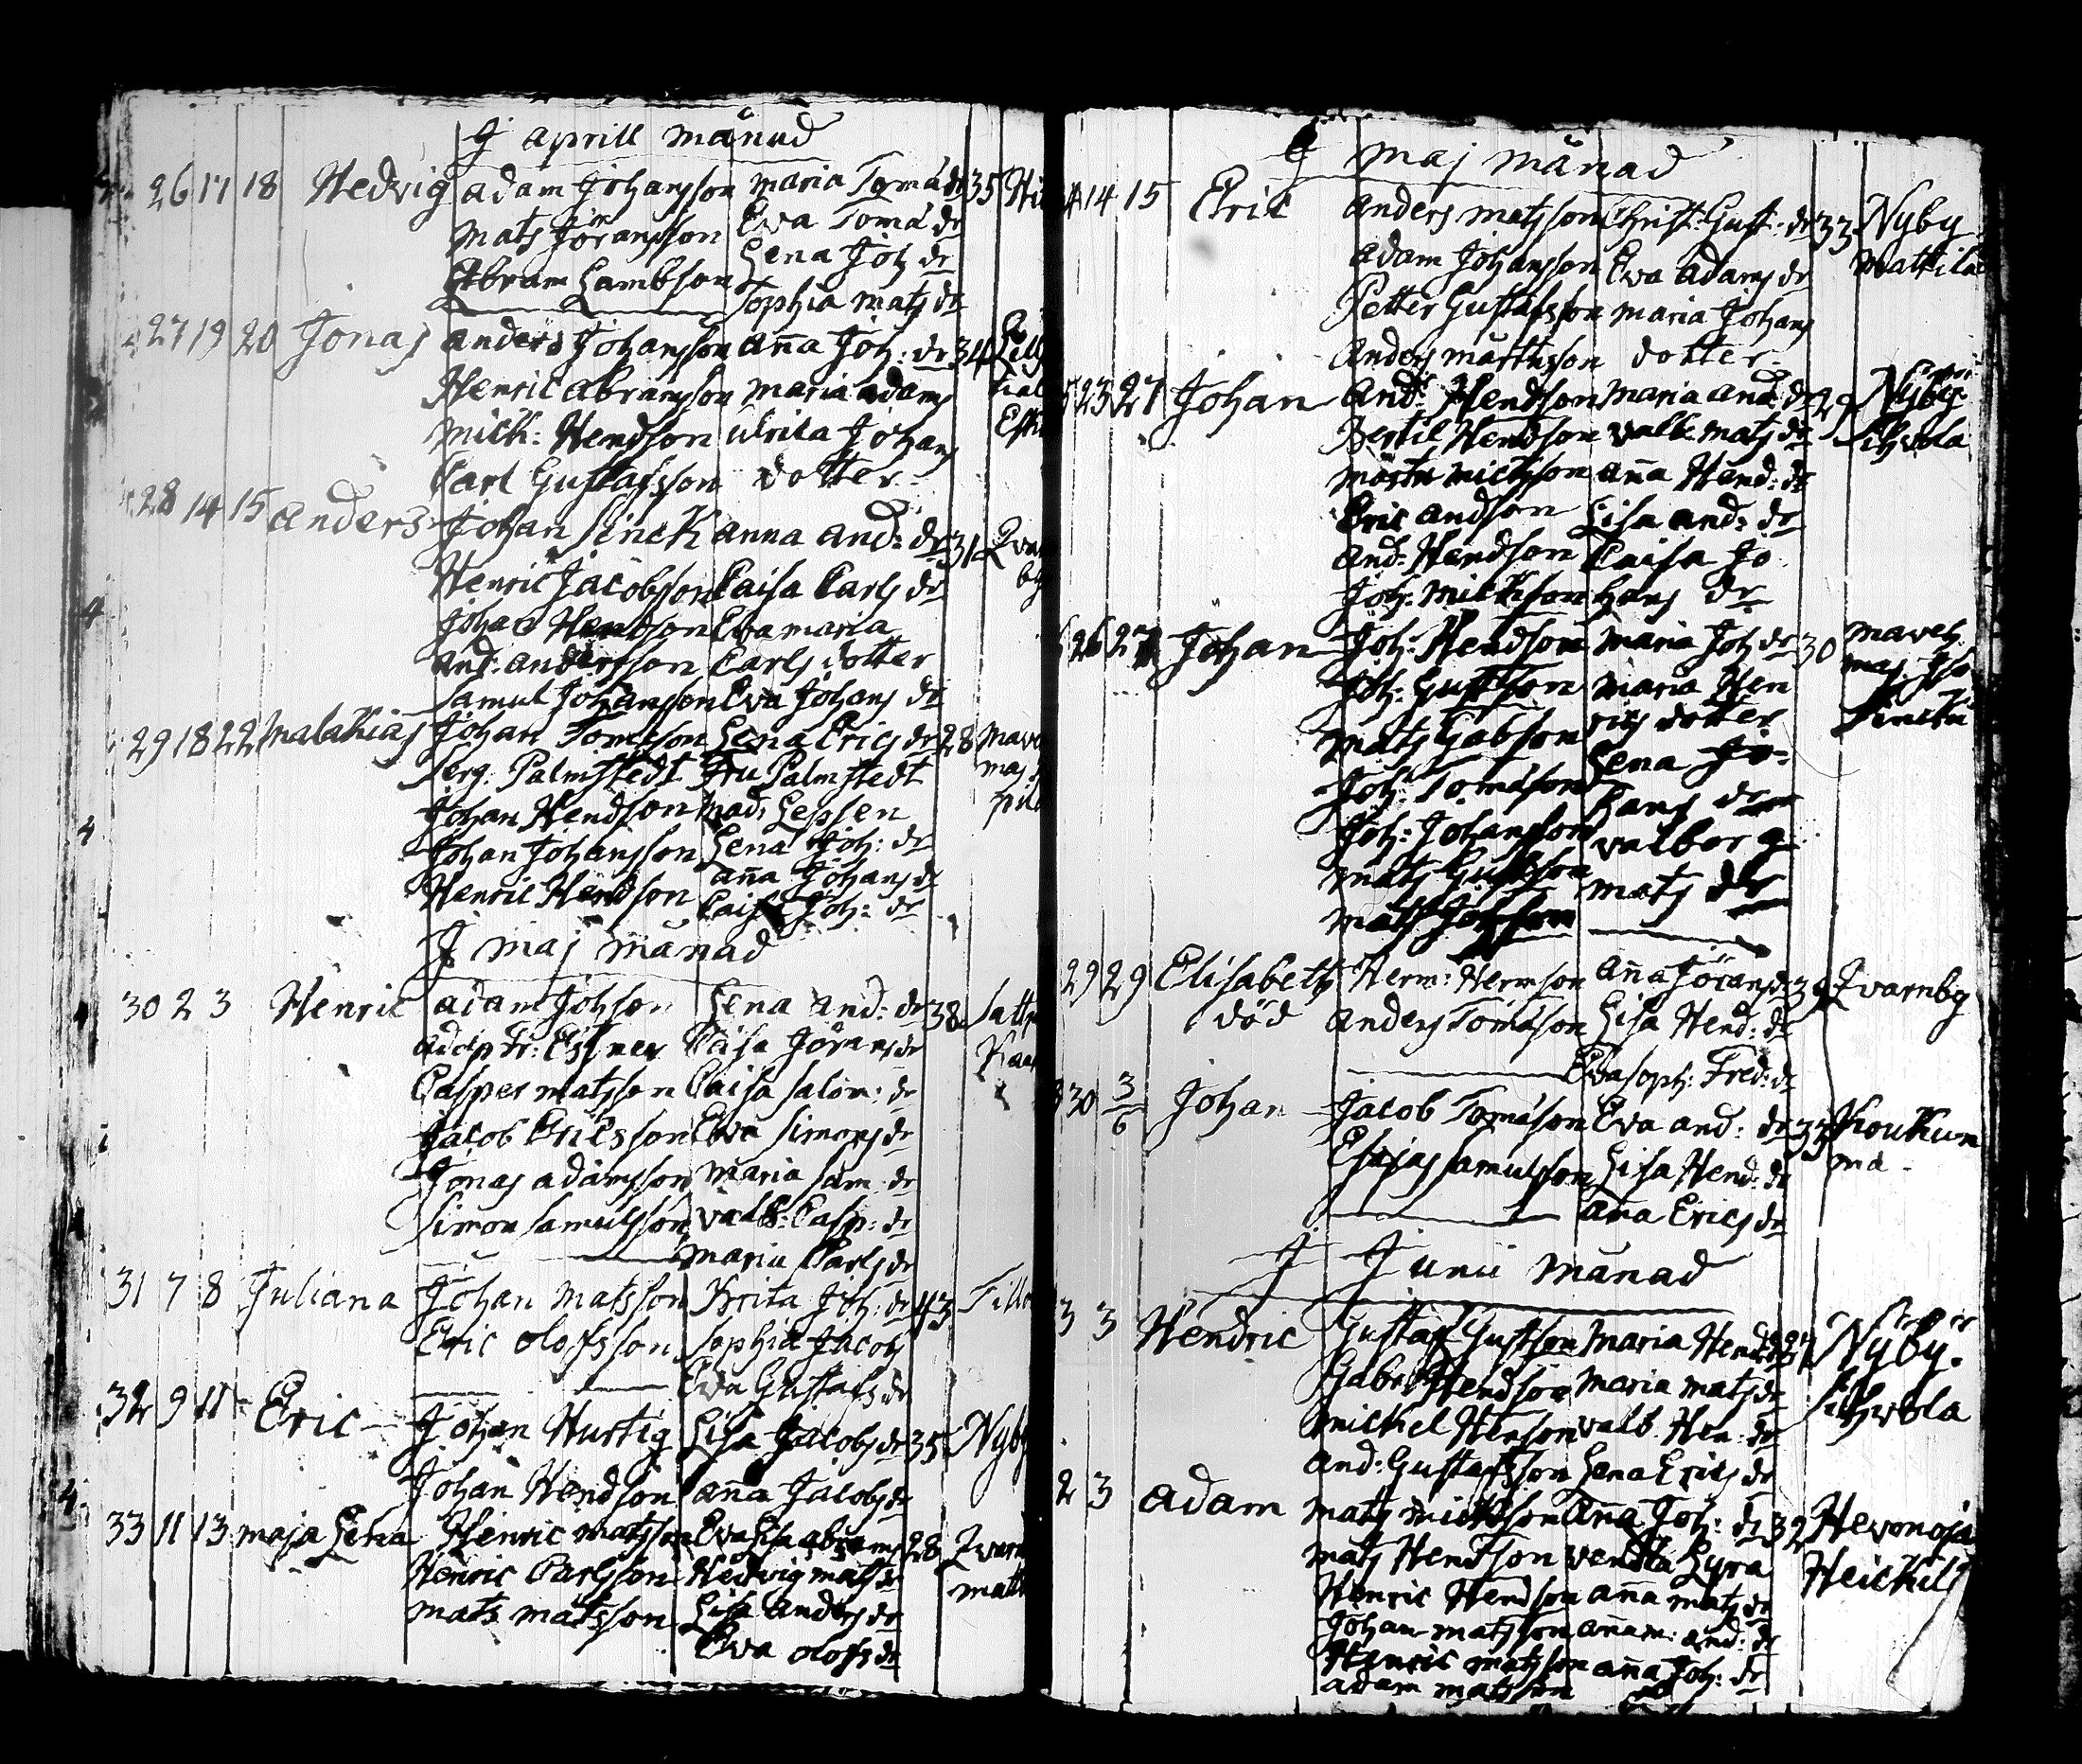 J aprill månad
26 17 18 Hedvig adam Johansson maria Tomă dr 35
mats Jöransson Eva Tomă dr
Abram Lambson Lena Joh dr
Sophia mats dr
27 19 20 Jonas anders Johansson aña Joh: dr 34
Henric abramson maria adams
mich: Hendson ulrica Johans
Carl Gustafsson dotter
28 14 15 anders Johan Sinck anna and: dr 31
Henric Jacobson Caisa Carls dr
Johan Hendson Eva maria
and: andersson Carls dotter
Samul Johansson Eva Johans dr
29 18 22 malakias Johan Tomeson Lena Erics dr 28
Serg. Palmstedt Fru Palmstedt
Johan Hendson mad: Lepsen
Johan Johansson Lena Joh: dr
Henric Hendson aña Johans dr
Caisa Joh: dr
J maj månad
30 2 3 Henric adam Johson Lena and: dr 38
Caisa Jörans dr
Casper matsson Caisa Salom: dr
Jacob Ericsson Eva Simons dr
Jonas adamsson maria Sam: dr
Simon Samulsson valb: Casp: dr
maria Carls dr
31 7 8 Juliana Johan matsson Brita Joh: dr 43
Eric olofsson Sophia Jacobs
Eva Gustafs dr
32 9 11 Eric Johan Hurtig Lisa Jacobs dr 35 Nyby
Johan Hendson aña Jacobs dr
33 11 13 maja Lena Henric matsson Eva Lisa abrams 28
Henric Carlsson Hedvig mats dr
mats matsson Lisa anders dr
Eva olofs dr
J maj månad
14 15 Eric anders matsson Christ: Gust: dr 33 Nyby
adam Johansson Eva adams dr mattila
Petter Gustafsson maria Johans
anders mattsson dotter
23 27 Johan and: Hendson maria and: dr 29 Nyby
Bertil Hendson valb. mats dr Sihvola
mårtn michson aña Hend: dr
Eric andson Lisa and: dr
and: Hendson Caisa Jo
Joh: michson hans dr
26 27 Johan Joh: Hendson maria Joh dr 30
Joh: Gustson maria Hen
mats Gabson rics dotter
Joh: Tomăson Lena Jo-
Joh: Johansson hans dr
mats Gustson valborg
mats Johson mats dr
29 29 Elisabeth Herm: Hermson aña Jörans dr 39 Qvarnby
död anders Tomăson Lisa Hend: dr
Eva soph: Fred: dr
30 3/6 Johan Jacob Tomăson Eva and: dr 33 Koukun
Esajas Samulsson Lisa Hend: dr ma
aña Erics dr
J Junii månad
3 3 Hendric Gustaf Gustson maria Hend: dr Nyby
Gabr: Hendson maria mats dr Sihvola
michel Henson valb. Hen: dr
and: Gustafsson Lena Erics dr
2 3 adam mats michson aña Joh: dr 32 Hevonoja
mats Hendson vendla Lyra Heickilä
Henric Hendson aña mats dr
Johan matsson aña m: and: dr
Henric matsson aña Joh: dr
adam matsson